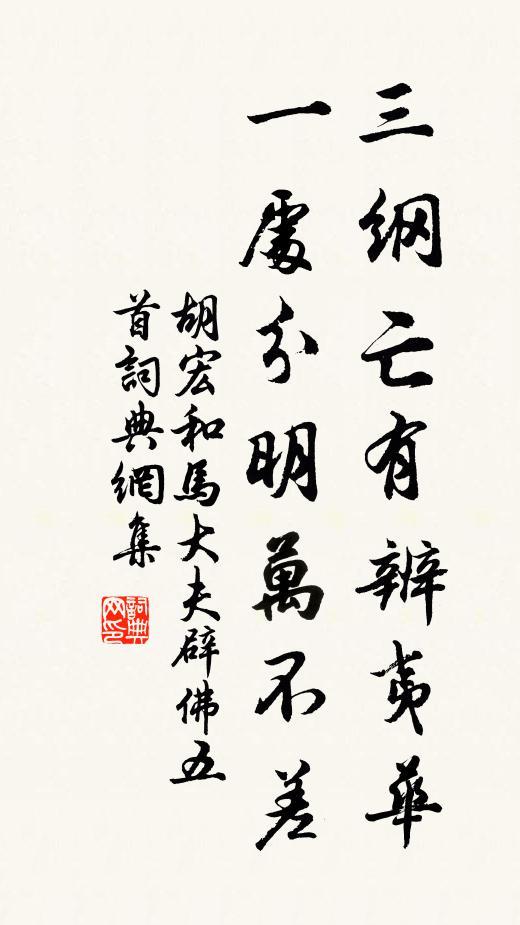 三綱亡有辨夷華
一處分明萬不差
胡宏和馬大夫辟佛五
首詞典網集
詞典网印